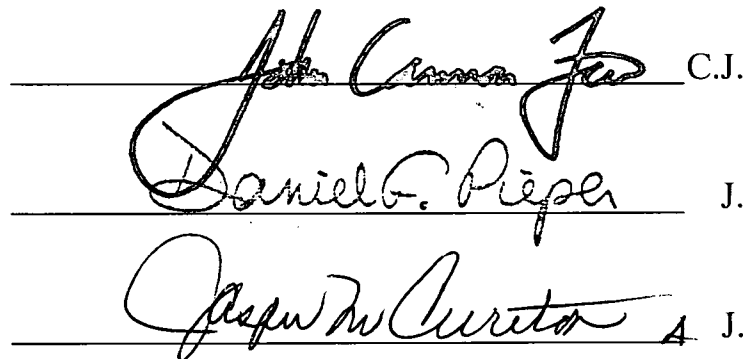 John Cannon Few C.J.
Daniel F. Pieper J.
Jasper M Cureton A J.